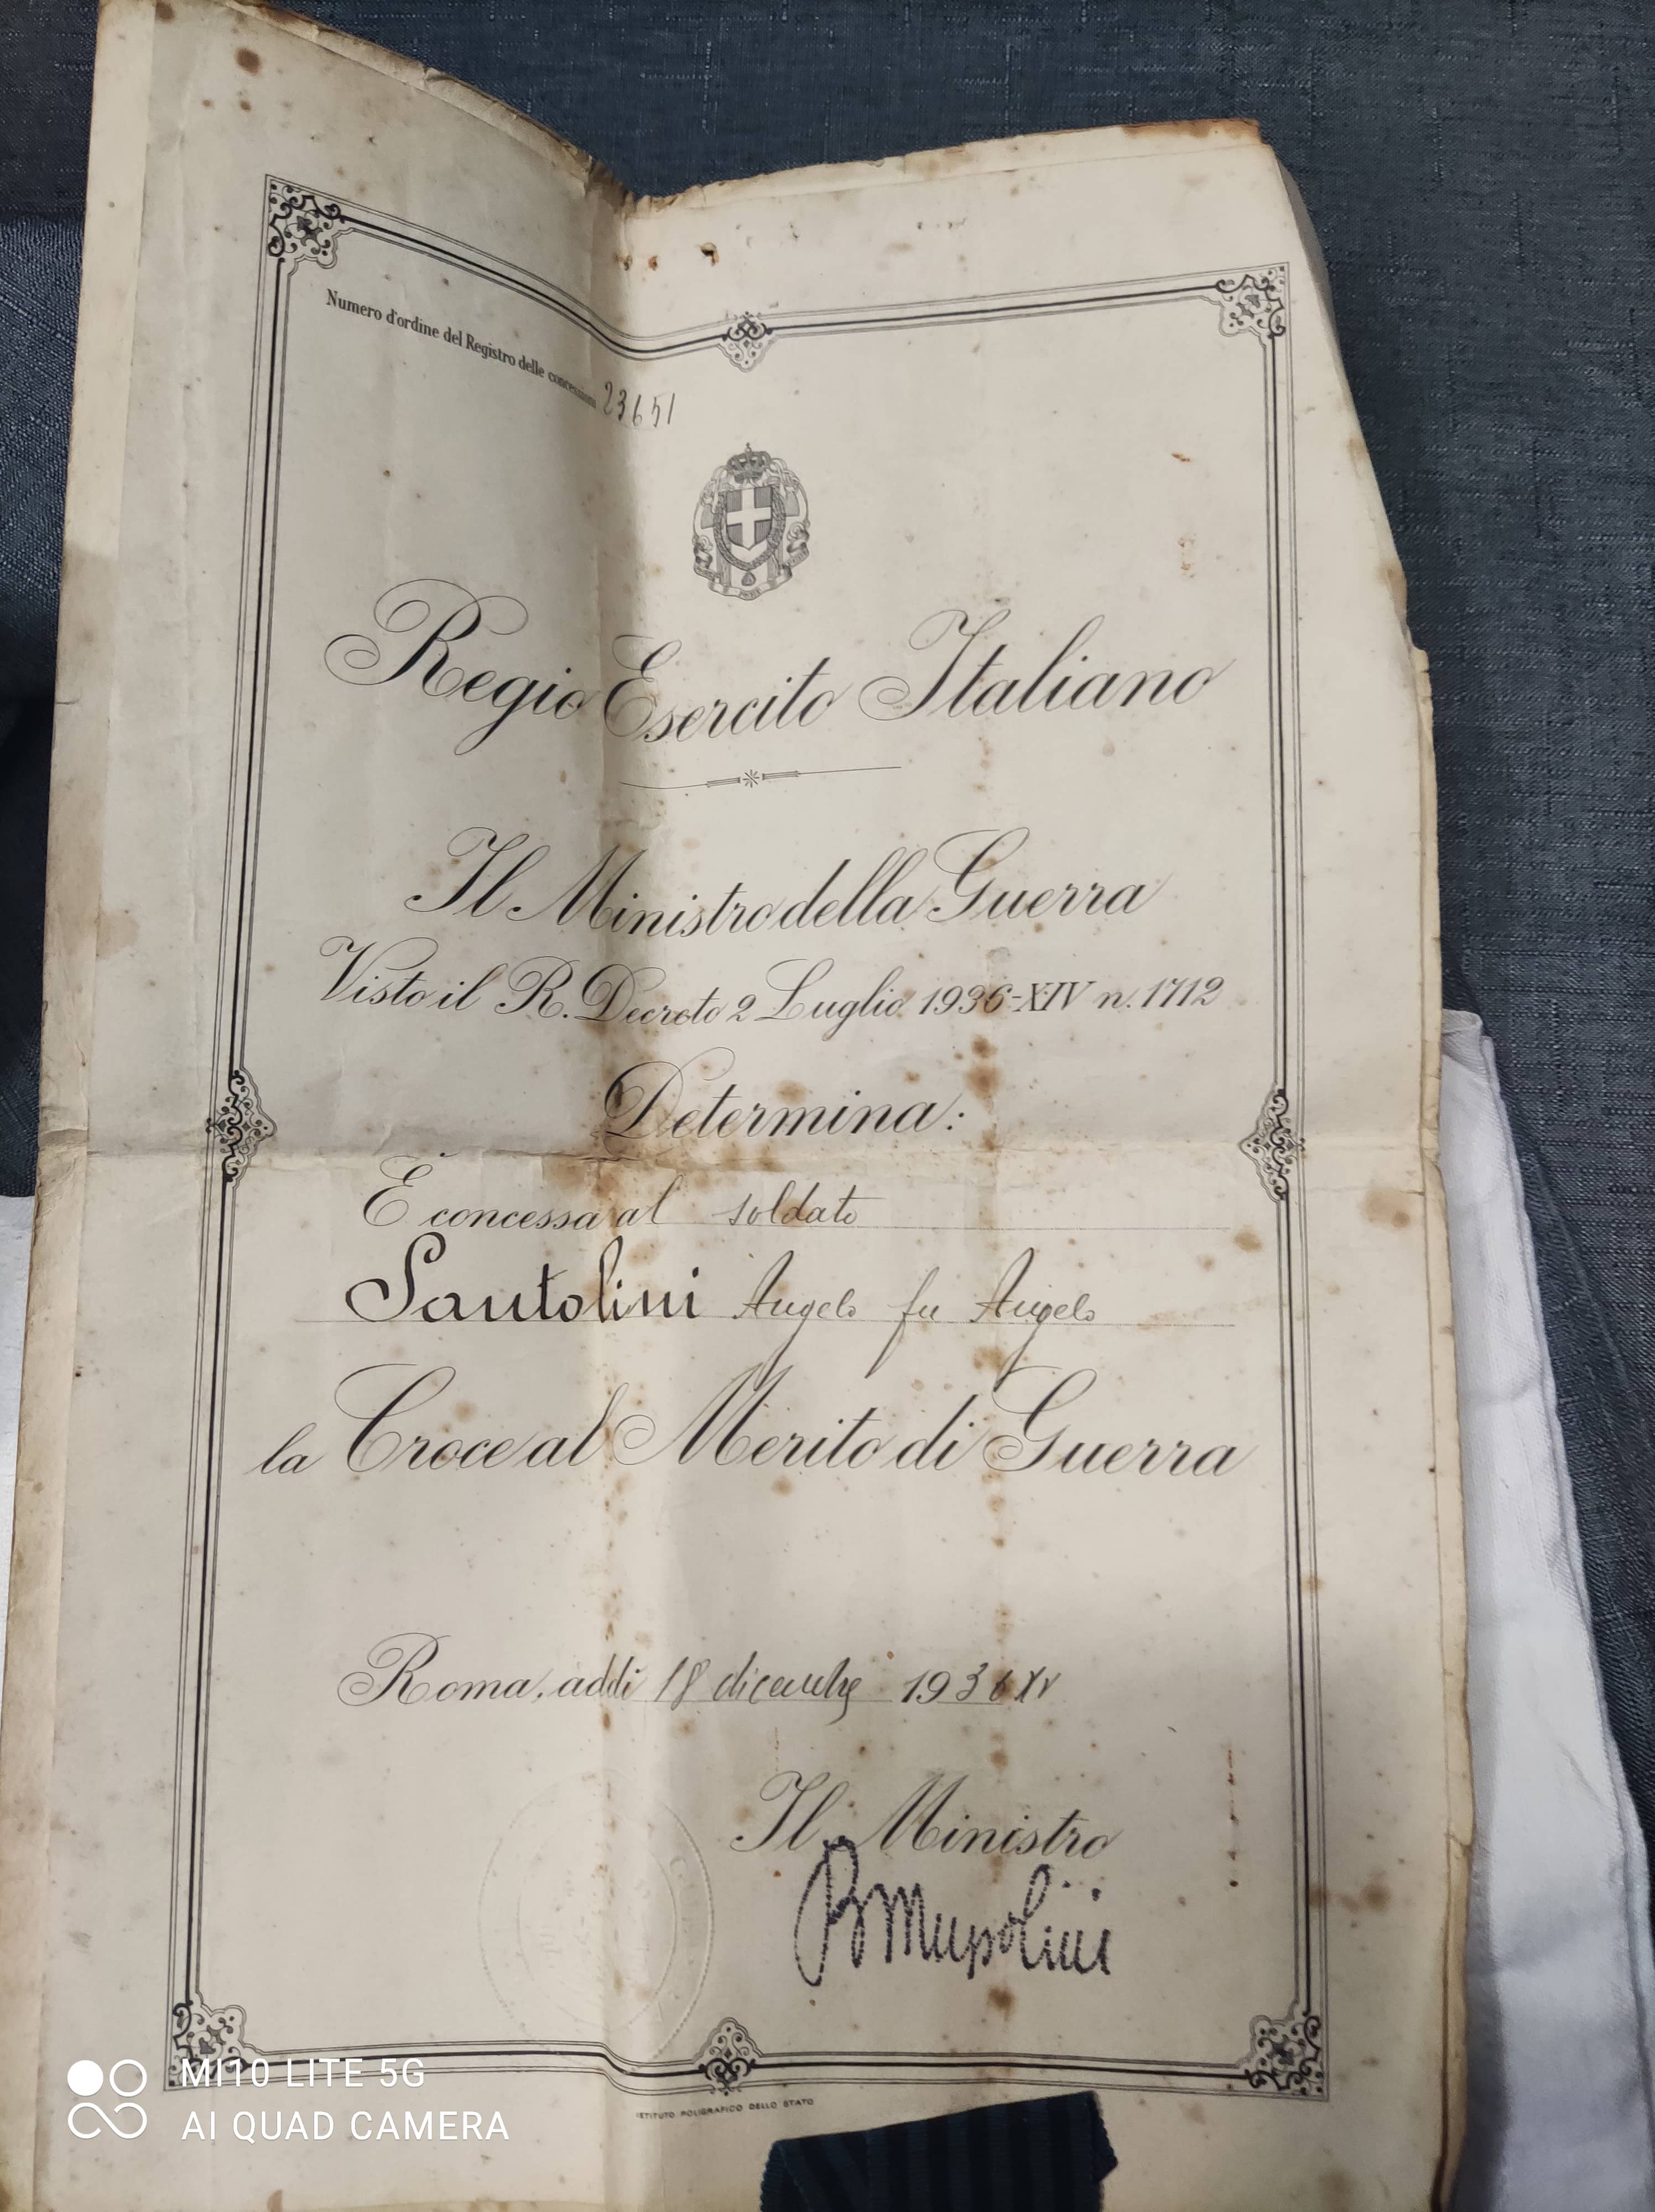 Numero d'ordine del Registro delle concessioni 23651
Regio Esercito Italiano
Il Ministro della Guerra
Visto il R. Decreto 2 Luglio 1936-XIV n. 1712
Determina:
È concessa al soldato
Santolini Angelo fu Angelo
la Croce al Merito di Guerra
Roma, addì 18 dicembre 1936 XV
Il Ministro
B Mussolini
ISTITUTO POLIGRAFICO DELLO STATO
MI 10 LITE 5G
AI QUAD CAMERA